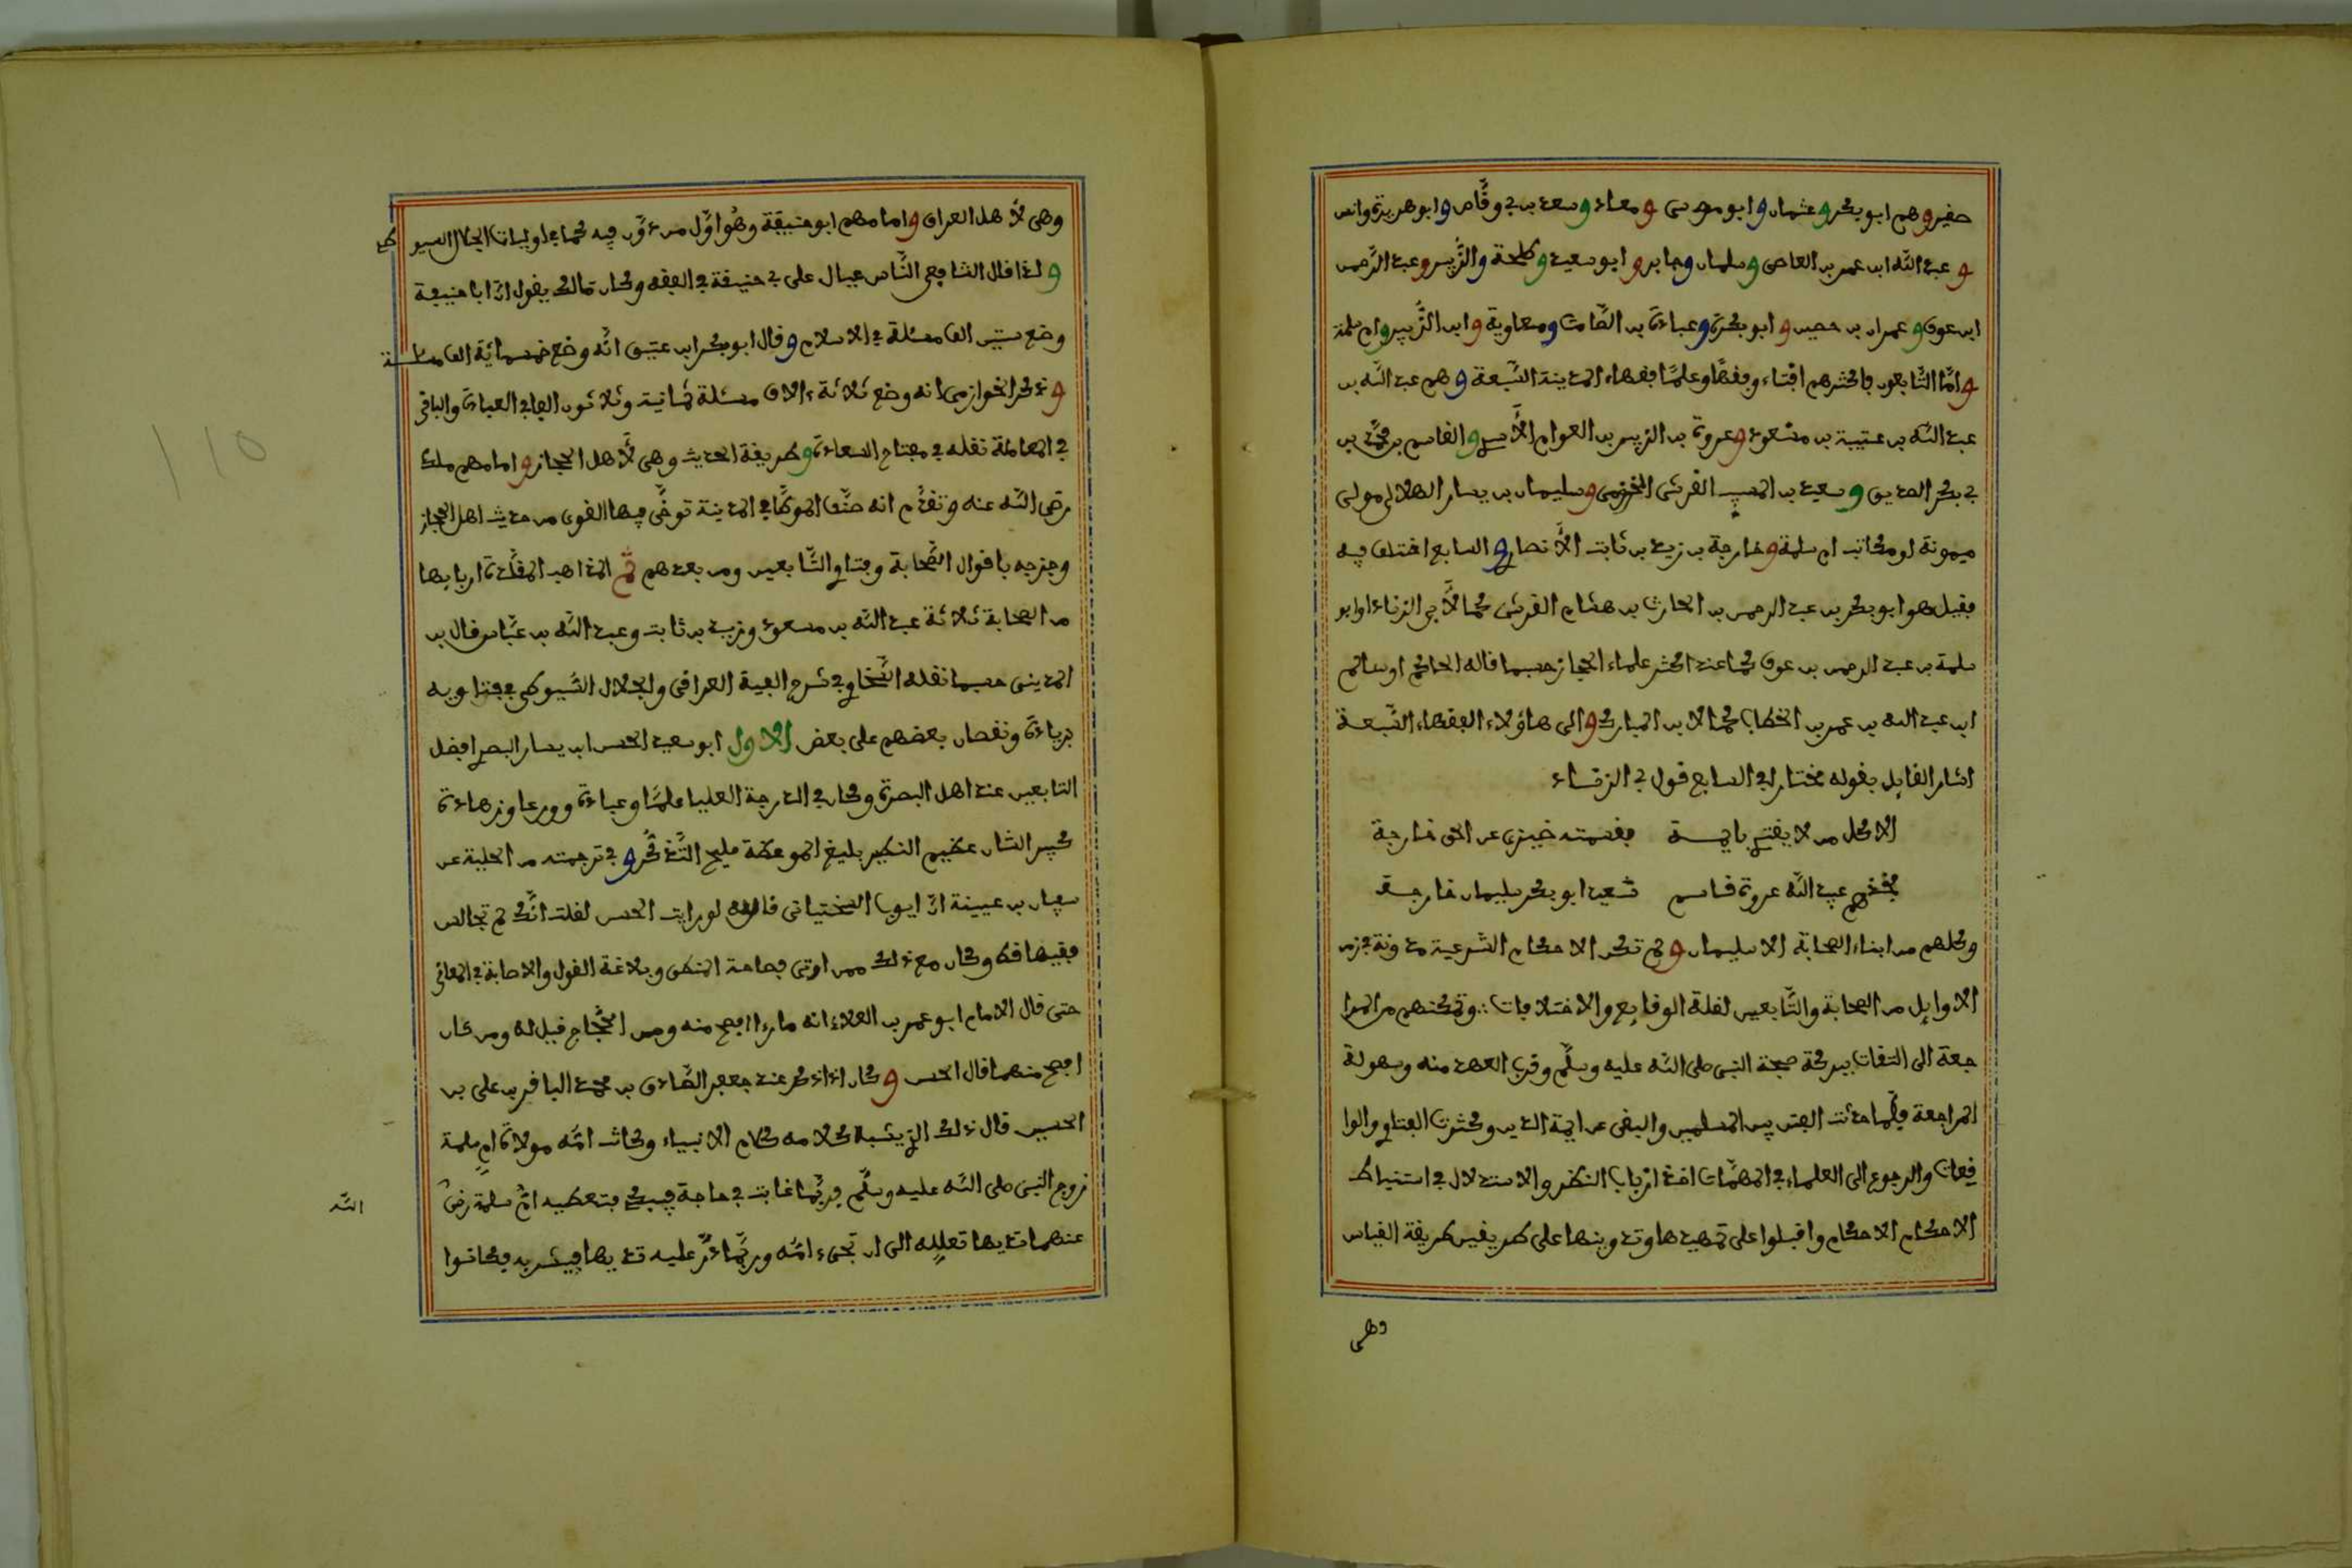 صغير وهم ابو بكر وعثمان وابو موسى ومعاذ وسعد بن ابي وقّاص وابو هريرة وانس
وعبد اللّه ابن عمر بن العاصى وسلمان وجابر وابو سعيد وطلحة والزّبير وعبد الرّحمن
ابن عوف وعمران بن حصين وابو بكرة وعبادة بن الصّامت ومعاوية وابن الزّبير وام سلمة
وامّا التّابعون فاكثرهم افتاء وفقهًا وعلمًا فقهاء المدينة السّبعة وهم عبد اللّه بن
عبد اللّه بن عتيبة بن مسعود وعروة بن الزبير بن العوام الأسدي والقاسم بن محمّد بن
ابي بكر الصديق وسعيد بن المسيب القرشى المخزومى وسليمان بن يسار الهلالى مولى
ميمونة او مكاتب ام سلمة وخارجة بن زيد بن ثابت الأنصاري والسابع اختلف فيه
فقيل هو ابو بكر بن عبد الرحمن بن الحارث بن هشام القرشى كما لأبي الزناد او ابو
سلمة بن عبد الرحمن بن عوف كما عند اكثر علماء الحجاز حسبما قاله الحاكم او سالم
ابن عبد الله بن عمر بن الخطاب كما لابن المبارك والى هاؤلاء الفقهاء السّبعة
اشار القايل بقوله مختارا في السابع قول ابي الزناد
الا كل من لا يقتدي بايمة فقسمته ضيزى عن الحق خارجة
فخذهم عبيد اللّه عروة قاسم سعيد ابو بكر سليمان خارجة
وكلهم من ابناء الصحابة الا سليمان ولم تكن الاحكام الشرعية مدونة في زمن
الاوايل من الصحابة والتّابعين لقلة الوقايع والاختلافات وتمكنهم من المرا
جعة الى الثقات ببركة صحبة النبى صلى اللّه عليه وسلّم وقرب العهد منه وسهولة
المراجعة فلمّا حدثت الفتن بين المسلمين والبغى عن ايمة الدين وكثرت الفتاوي والوا
قعات والرجوع الى العلماء في المهمّات اخذ ارباب النظر والاستدلال في استنباط
الاحكام الاحكام واقبلوا على تمهيدها وتدوينها على طريقين طريقة القياس
وهى
وهى لأهل العراق وامامهم ابو حنيفة وهُو اوّل من دوّن فيه كما في اوليات الجلال السيو
طي
ولذا قال الشافعي النّاس عيال على ابي حنيفة في الفقه وكان مالك يقول انّ ابا حنيفة
وضع ستين الف مسئلة في الاسلام وقال ابو بكر ابن عتيق انّه وضع خمسمائة الف مسئلة
وذكر الخوازمى انه وضع ثلاثة ءالاف مسئلة ثمانية وثلاثون الفا في العبادة والباقى
في المعاملة نقله في مفتاح السعادة وطريقة الحديث وهى لأهل الحجاز وامامهم ملك
رضى اللّه عنه وتقدّم انه صنّف الموطّا في المدينة توخّى فيها القوى من حديث اهل الحجاز
ومزجه باقوال الصّحابة وفتاوي التّابعين ومن بعدهم ثم المذاهب المقلّدة اربابها
من الصحابة ثلاثة عبد اللّه بن مسعود وزيد بن ثابت وعبد اللّه بن عبّاس قال بن
المدينى حسبما نقله السّخاوي في شرح الفية العراقى والجلال السّيوطي في فتاويه
بزيادة ونقصان بعضهم على بعض الاول ابو سعيد الحسن ابن يسار البصري افضل
التابعين عند اهل البصرة وكان في الدرجة العليا علمًا وعبادة وورعا وزهادة
كبير الشان عظيم النكير بليغ الموعظة مليح التّذكّر وفي ترجمته من الحلية عن
سفيان بن عيينة انّ ايوب السختيانى قال له لو رايت الحسن لقلت انّك لم تجالس
فقيها قط وكان مع ذلك ممن اوتى فصاحة المنطق وبلاغة القول والاصابة في المعانى
حتى قال الامام ابو عمر بن العلاء انه ما رءا افصح منه ومن الحجّاج فقيل له ومن كان
افصح منهما قال الحسن وكان اذا ذكر عند جعفر الصّادق بن محمد الباقر بن على بن
الحسين قال ذلك الذي يشبه كلامه كلام الانبياء وكانت امّه مولاة ام سلمة
زوج النبى صلى اللّه عليه وسلّم فربّما غابت في حاجة فيبكي فتعطيه امّ سلمة رضى
اللّه
عنهما ثديها تعلله الى ان تجىء امّه وربّما درّ عليه ثديها فيشربه فكانوا
110